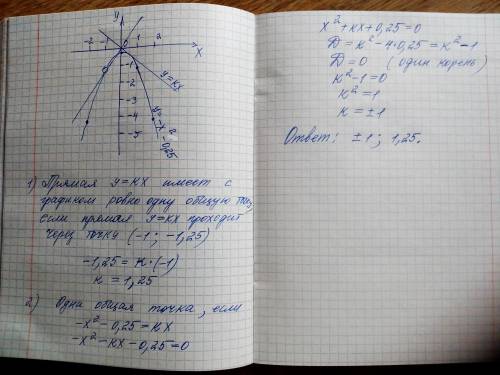 y
-2 -1 0 1 2 x
-1
-2
-3
-4
-5
y=kx
y=-x²-0,25
1) Прямая y=kx имеет с
графиком ровно одну общую точку,
если прямая y=kx проходит
через точку (-1; -1,25)
-1,25 = k·(-1)
k = 1,25
2) Одна общая точка, если
-x²-0,25=kx
-x²-kx-0,25=0
x²+kx+0,25=0
D=k²-4·0,25=k²-1
D=0 (один корень)
k²-1=0
k²=1
k=±1
Ответ: ±1; 1,25.